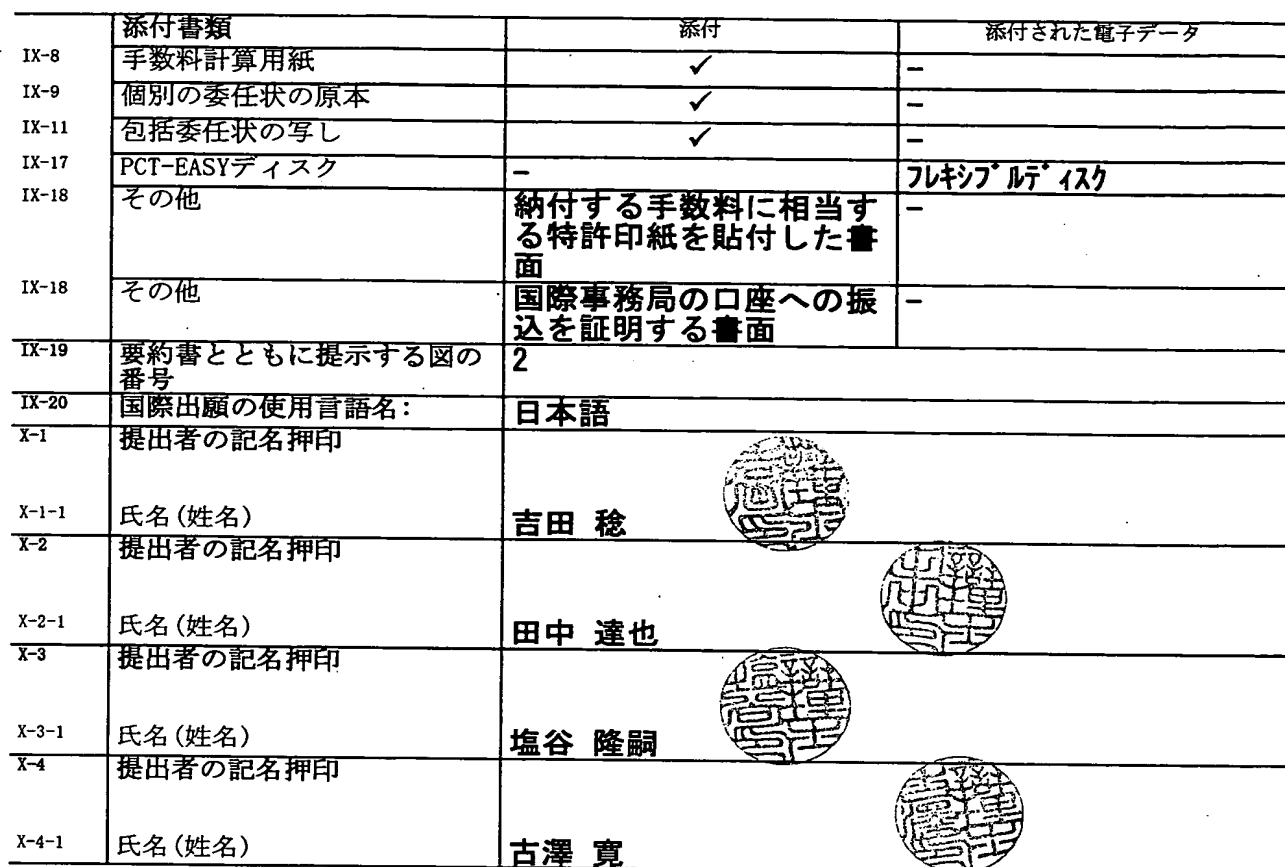 添付書類 添付 添付された電子データ
IX-8 手数料計算用紙 ✓ −
IX-9 個別の委任状の原本 ✓ −
IX-11 包括委任状の写し ✓ −
IX-17 PCT-EASYディスク − フレキシブルディスク
IX-18 その他 納付する手数料に相当す −
る特許印紙を貼付した書
面
IX-18 その他 国際事務局の口座への振 −
込を証明する書面
IX-19 要約書とともに提示する図の 2
番号
IX-20 国際出願の使用言語名: 日本語
X-1 提出者の記名押印
X-1-1 氏名(姓名) 吉田 稔
X-2 提出者の記名押印
X-2-1 氏名(姓名) 田中 達也
X-3 提出者の記名押印
X-3-1 氏名(姓名) 塩谷 隆嗣
X-4 提出者の記名押印
X-4-1 氏名(姓名) 古澤 寛